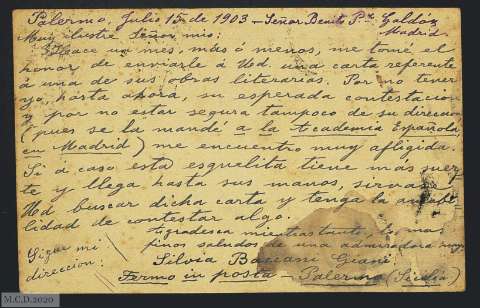 Palermo, Julio 15 de 1903 - Señor Benito Pz Galdós
Madrid
Muy ilustre Señor mio:
Hace un mes, más ó menos, me tomé el
honor de enviarle á Ud. una carta referente
á una de sus obras literarias. Por no tener
yo, hasta ahora, su esperada contestacion
y por no estar segura tampoco de su direccion
(pues se la mandé á la Academia Española,
en Madrid) me encuentro muy afligida.
Si á caso esta esquelita tiene más suer-
te y llega hasta sus manos, sirvase
Ud buscar dicha carta y tenga la amabi-
lidad de contestar algo.
Agradesca mientras tanto, los mas
finos saludos de una admiradora suya
Silvia Baccani Giani
Sigue mi
direccion:
Fermo in posta - Palermo (Sicilia)
M.C.D.2020